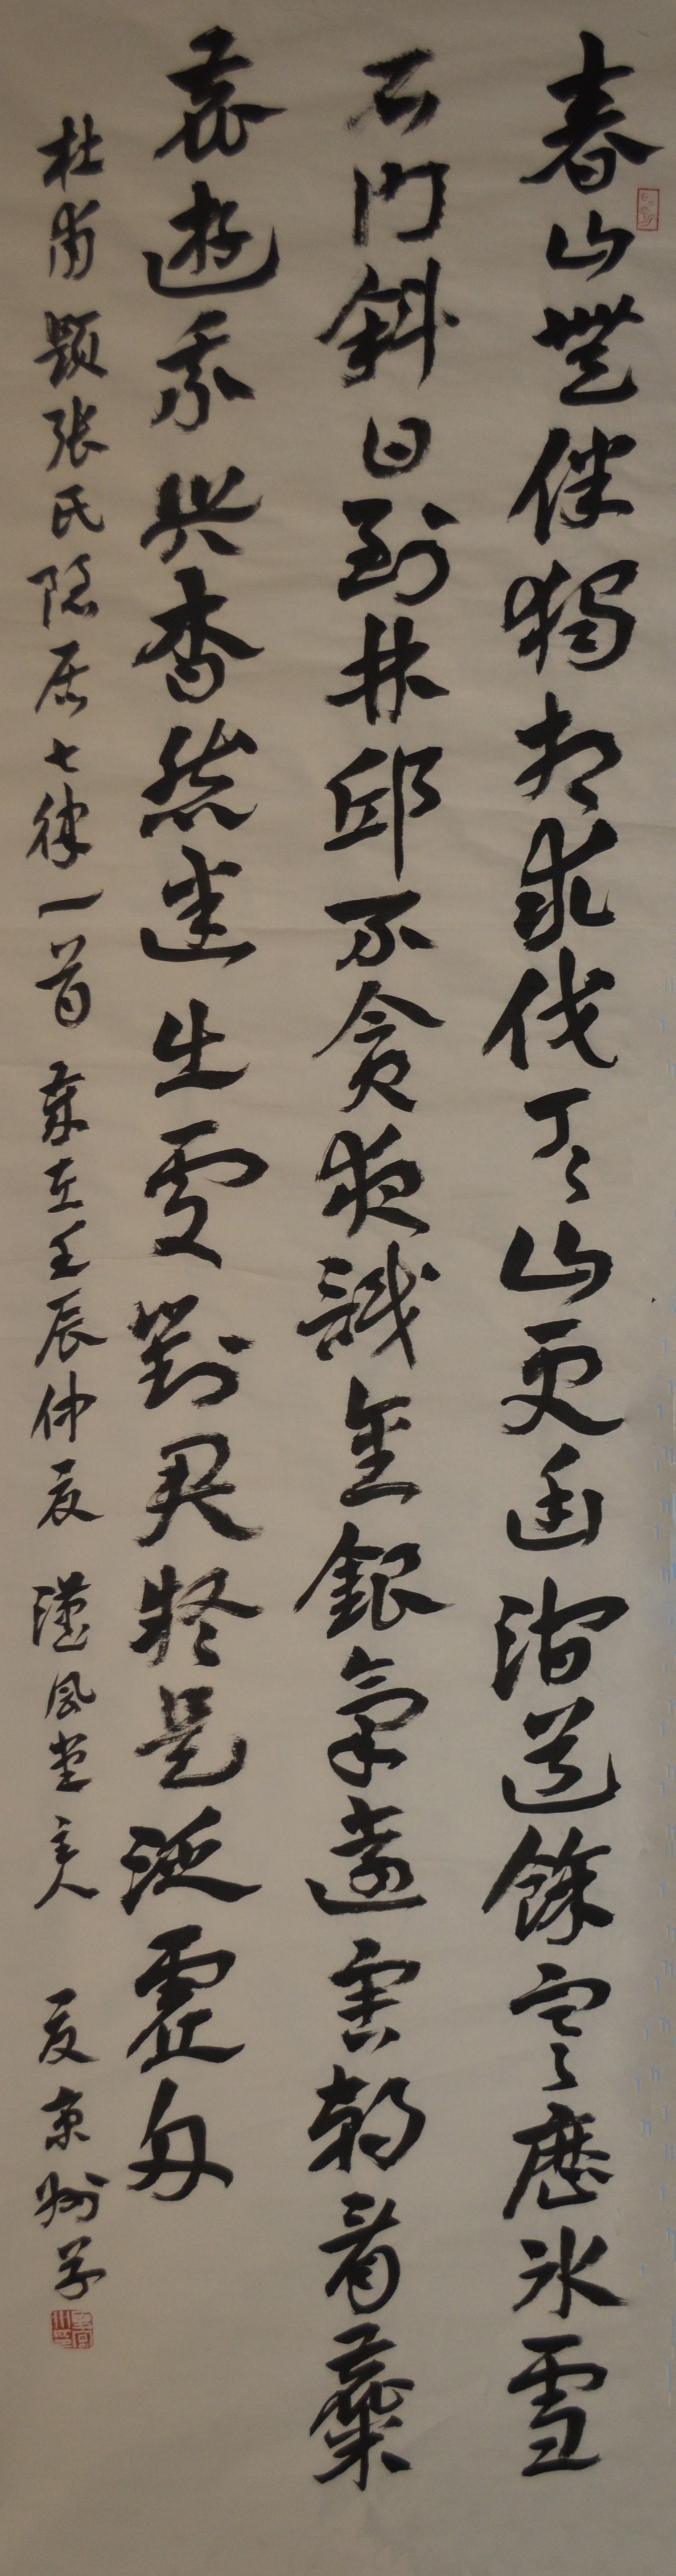 春山無伴獨相求伐丁々山更幽澗道餘寒歷冰雪
石門斜日到林邱不貪夜識金銀氣遠害朝看麋
鹿遊乘興杳然迷出處對君疑是泛虛舟
杜甫題張氏隐居七律一首 歲在壬辰仲夏 漢風堂主人 夏京州书